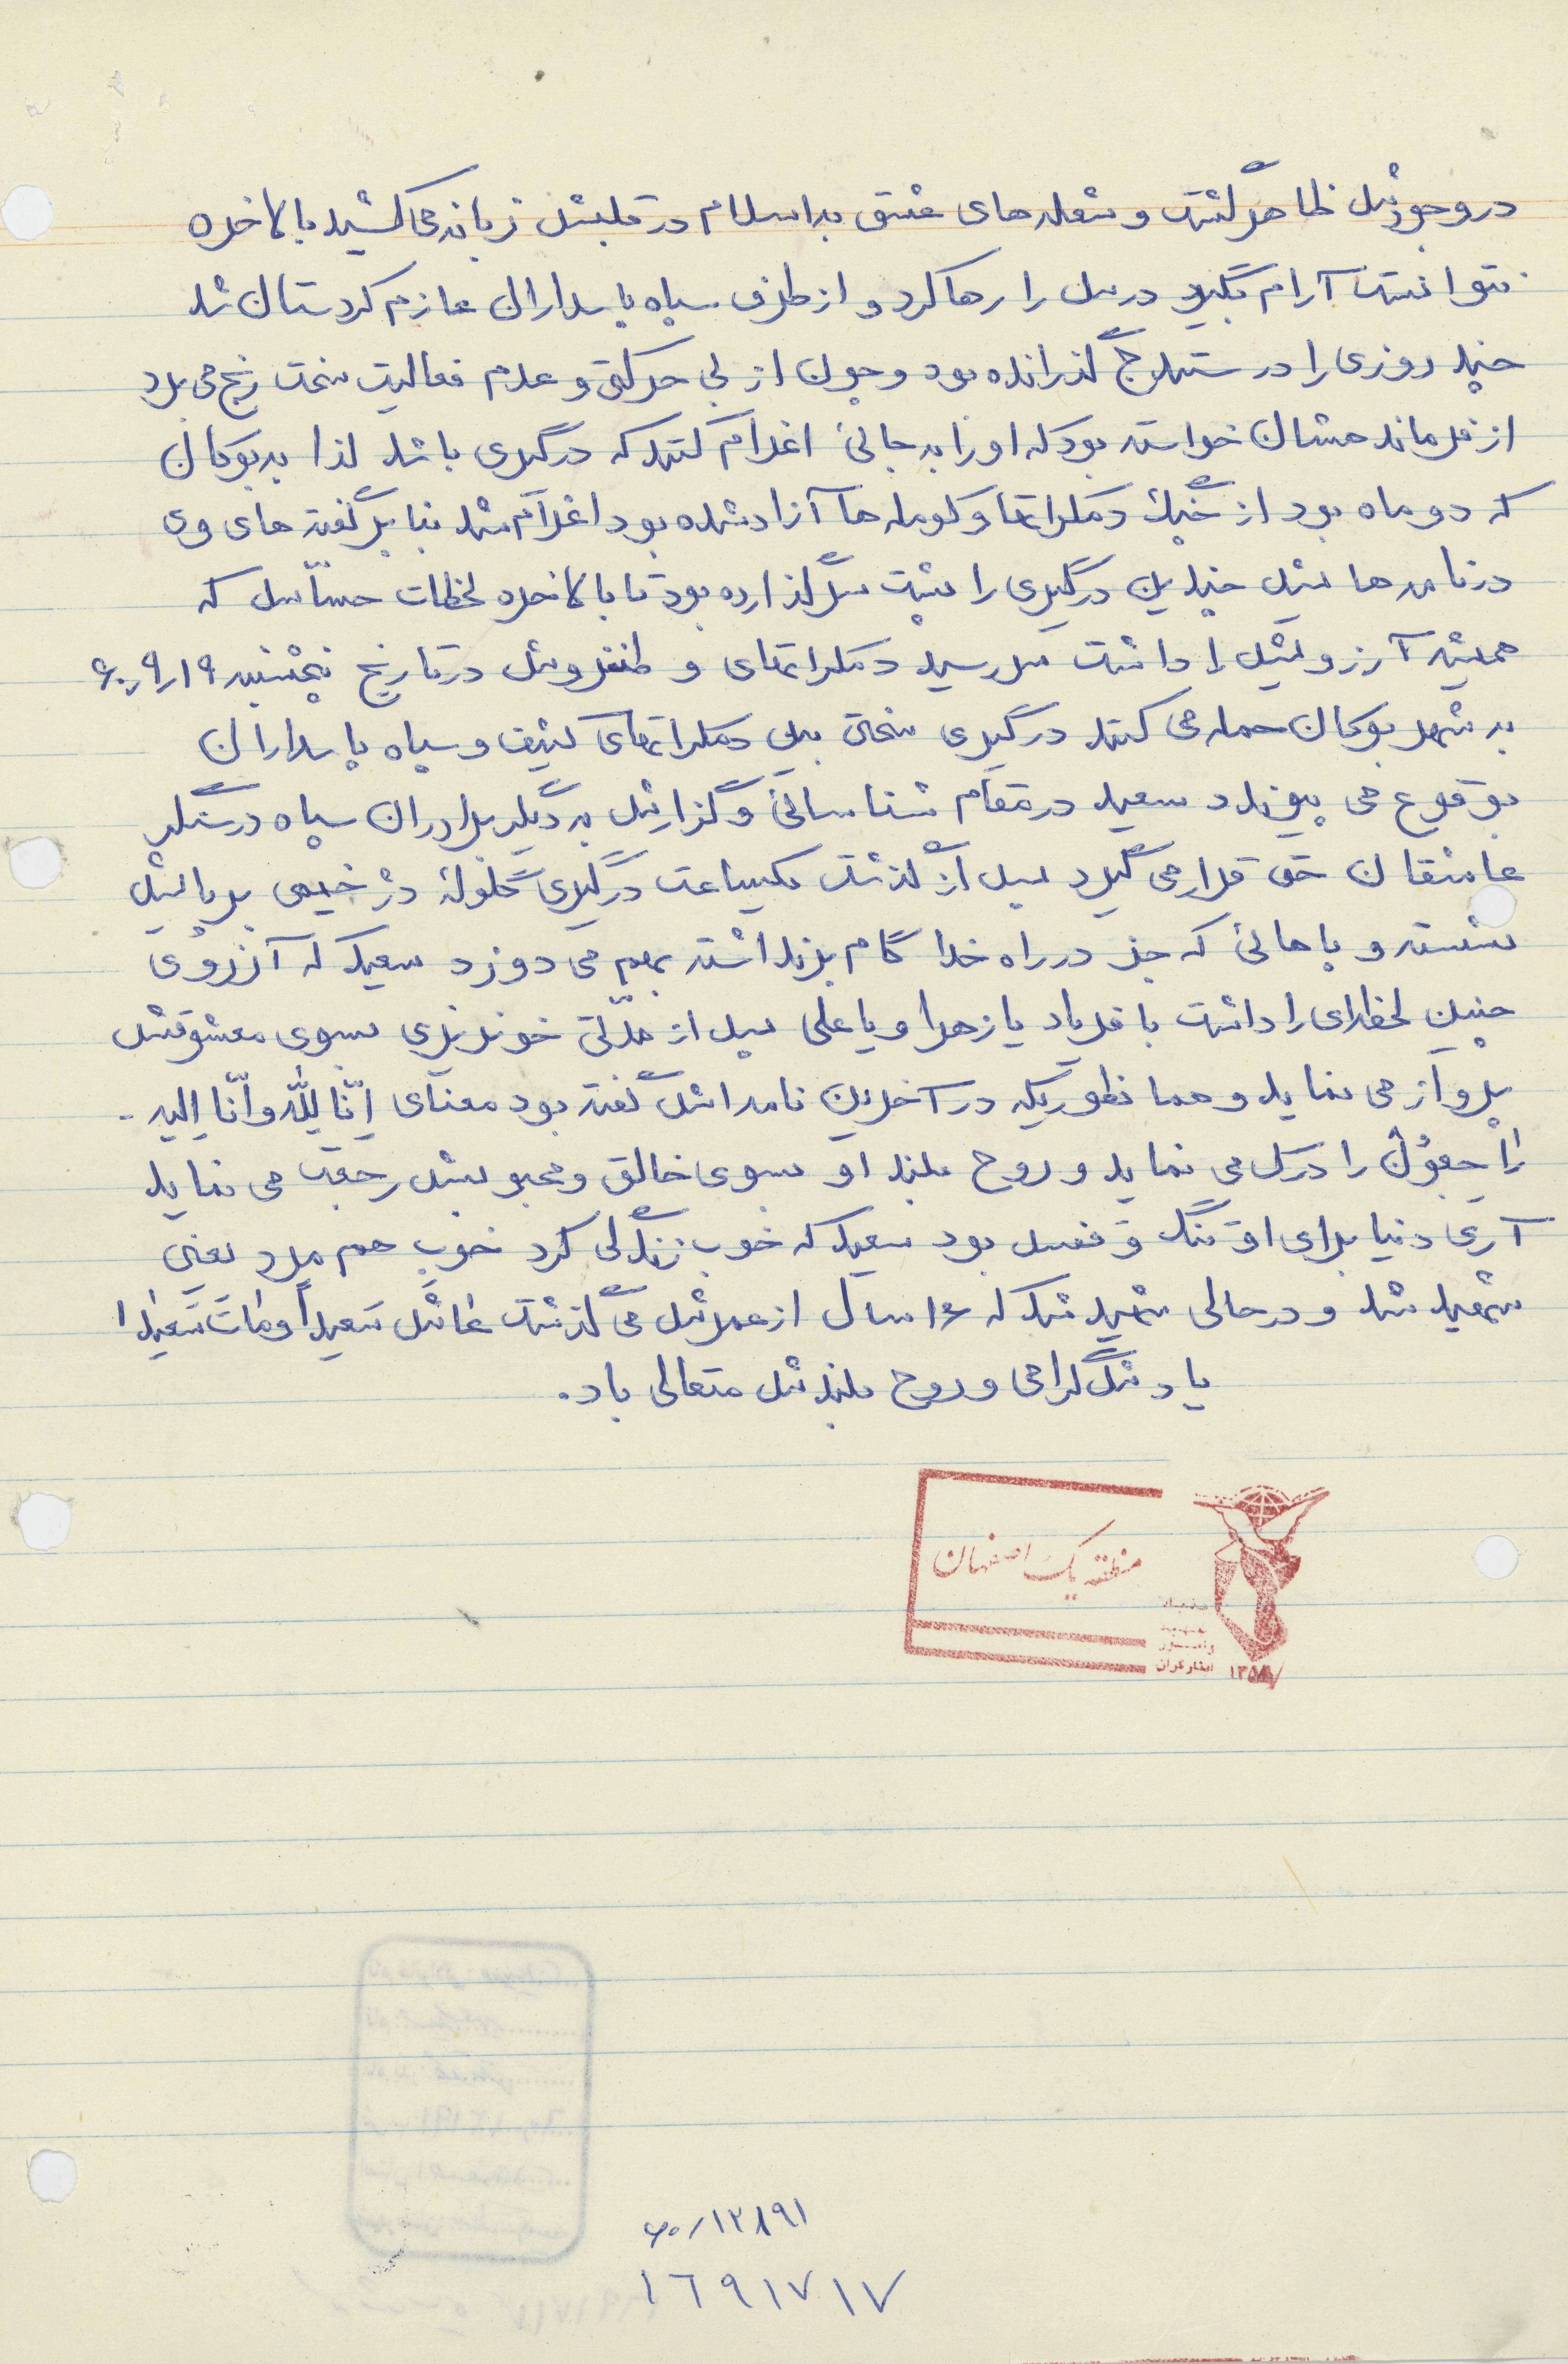 در وجودش ظاهر گشت و شعله های عشق به اسلام در قلبش زبانه می کشید بالاخره
نتوانست آرام بگیرد درس را رها کرد و از طرف سپاه پاسداران عازم کردستان شد
چند روزی را در سنندج گذرانده بود و چون از بی حرکتی و عدم فعالیت سخت رنج می برد
از فرمانده هشان خواسته بود که او را به جائی اعزام کنند که درگیری باشد لذا به بوکان
که دو ماه بود از چنگ دمکراتها و کومله ها آزاد شده بود اعزام شد بنا بر گفته های وی
در نامه هایش چندین درگیری را پشت سر گذارده بود تا بالاخره لحظات حساس که
همیشه آرزویش را داشت سر رسید دمکراتهای در تاریخ پنجشنبه ۶۰٫۹٫۱۹
به شهر بوکان حمله می کنند درگیری سختی بین دمکراتهای کثیف و سپاه پاسداران
بوقوع می پیوندد سعید در مقام شناسائی و گزارش به دیگر برادران سپاه در سنگر
عاشقان حق قرار می گیرد پس از گذشت یکساعت درگیری گلوله دژخیمی بر پایش
نشسته و پاهائی که جز در راه خدا گام برنداشته بهم می دوزد سعید که آرزوی
چنین لحظه ای را داشت با فریاد یا زهرا و یا علی پس از مدّتی خونریزی بسوی معشوقش
پرواز می نماید و همانطوریکه در آخرین نامه اش گفته بود معنای اِنّا لِلّه وَ اِنّا اِلیه -
راجِعُونْ را درک می نماید و روح بلند او بسوی خالق و محبوبش رجعت می نماید
آری دنیا برای او تنگ و قفس بود سعید که خوب زندگی کرد خوب هم مرد یعنی
شهید شد و در حالی شهید شد که ۱۶ سال از عمرش می گذشت عاش سَعیداً و ماتَ سَعیدا
یادش گرامی و روح بلندش متعالی باد.
منطقه یک اصفهان
بنیاد
شهید
و امور
ایثارگران ۱۳۵۸
۶۰/۱۲۸۹۱
۱۶۹۱۷۱۷